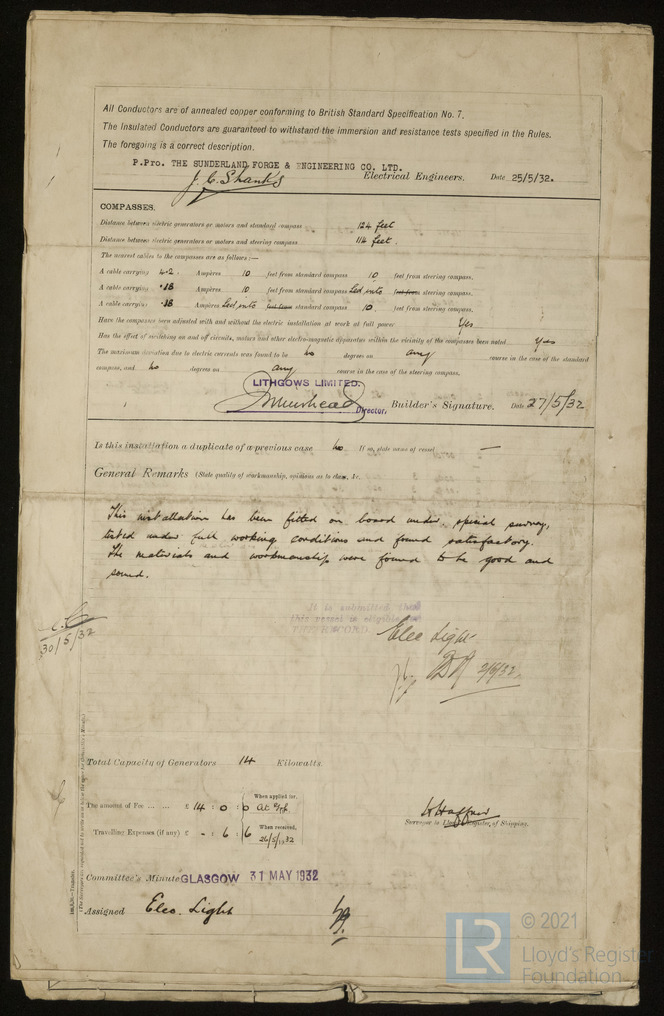 All Conductors are of annealed copper conforming to British Standard Specification No. 7.
The Insulated Conductors are guaranteed to withstand the immersion and resistance tests specified in the Rules.
The foregoing is a correct description.
P.Pro. THE SUNDERLAND FORGE & ENGINEERING CO. LTD.
J. C. Shanks Electrical Engineers. Date 25/5/32.
COMPASSES.
Distance between electric generators or motors and standard compass 124 feet
Distance between electric generators or motors and steering compass 114 feet.
The nearest cables to the compasses are as follows:—
A cable carrying 4.2 Ampères 10 feet from standard compass 10 feet from steering compass.
A cable carrying .18 Ampères 10 feet from standard compass Led into feet from steering compass.
A cable carrying .18 Ampères Led into feet from standard compass 10 feet from steering compass.
Have the compasses been adjusted with and without the electric installation at work at full power Yes
Has the effect of switching on and off circuits, motors and other electro-magnetic apparatus within the vicinity of the compasses been noted Yes
The maximum deviation due to electric currents was found to be No degrees on any course in the case of the standard
compass, and No degrees on any course in the case of the steering compass.
LITHGOWS LIMITED.
Muirhead Director, Builder's Signature. Date 27/5/32
Is this installation a duplicate of a previous case No If so, state name of vessel —
General Remarks (State quality of workmanship, opinions as to class, &c.
This installation has been fitted on board under special survey,
tested under full working conditions and found satisfactory.
The materials and workmanship were found to be good and
sound.
It is submitted that
this vessel is eligible for
THE RECORD
Elec Light
30/5/32
2/6/32
Total Capacity of Generators 14 Kilowatts.
The amount of Fee ... ... £ 14 : 0 : 0 When applied for,
Travelling Expenses (if any) £ - : 6 : 6 When received, 26/5/1932
Surveyor to Lloyd's Register of Shipping.
Committee's Minute GLASGOW 31 MAY 1932
Assigned Elec. Light
LR © 2021
Lloyd's Register
Foundation